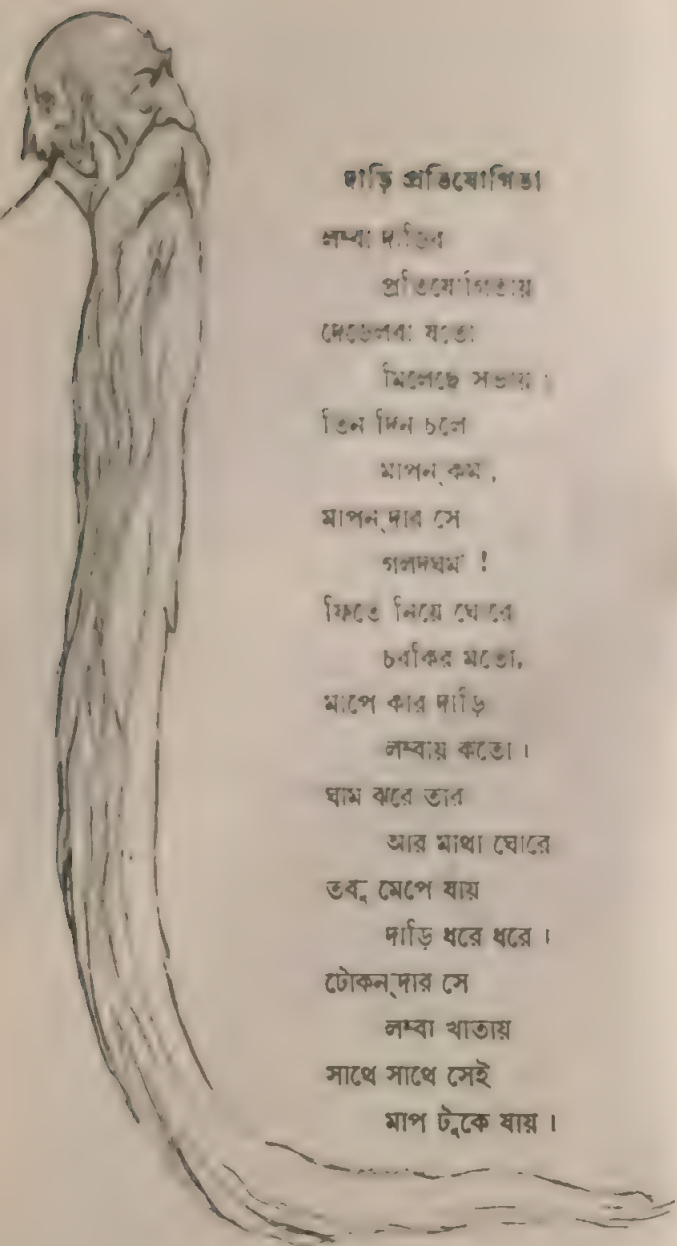 দাড়ি প্রতিযোগিতা
লম্বা দাড়ির
প্রতিযোগিতায়
দেড়েলরা যতো
মিলেছে সভায়।
তিন দিন চলে
মাপন্ কর্ম,
মাপন্‌দার সে
গলদঘর্ম !
ফিতে নিয়ে ঘোরে
চরকির মতো,
মাপে কার দাড়ি
লম্বায় কতো।
ঘাম ঝরে তার
আর মাথা ঘোরে
তবু মেপে যায়
দাড়ি ধরে ধরে।
টোকন্‌দার সে
লম্বা খাতায়
সাথে সাথে সেই
মাপ টুকে যায়।